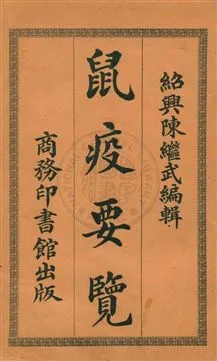 紹興陳繼武編輯
鼠疫要覽
商務印書館出版